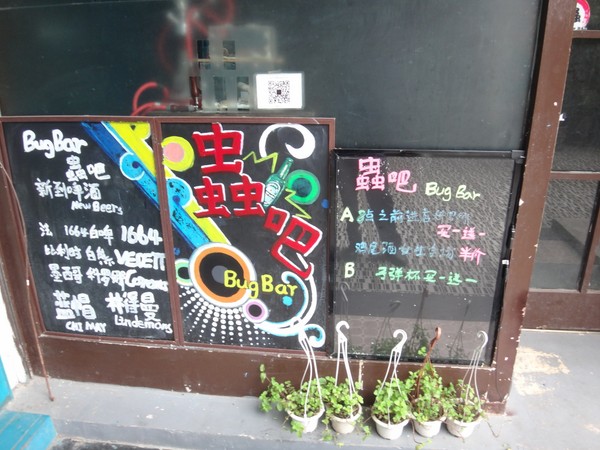 BugBar
蟲吧
新到啤酒
New Beers
法 1664白啤 1664
比利时 白熊 VEDETT
墨西哥 科罗娜 Corona
蓝帽 林得曼
CHIMAY Lindemans
蟲吧
BugBar
蟲吧 BugBar
A
买一送一
半价
B 子弹杯买一送一